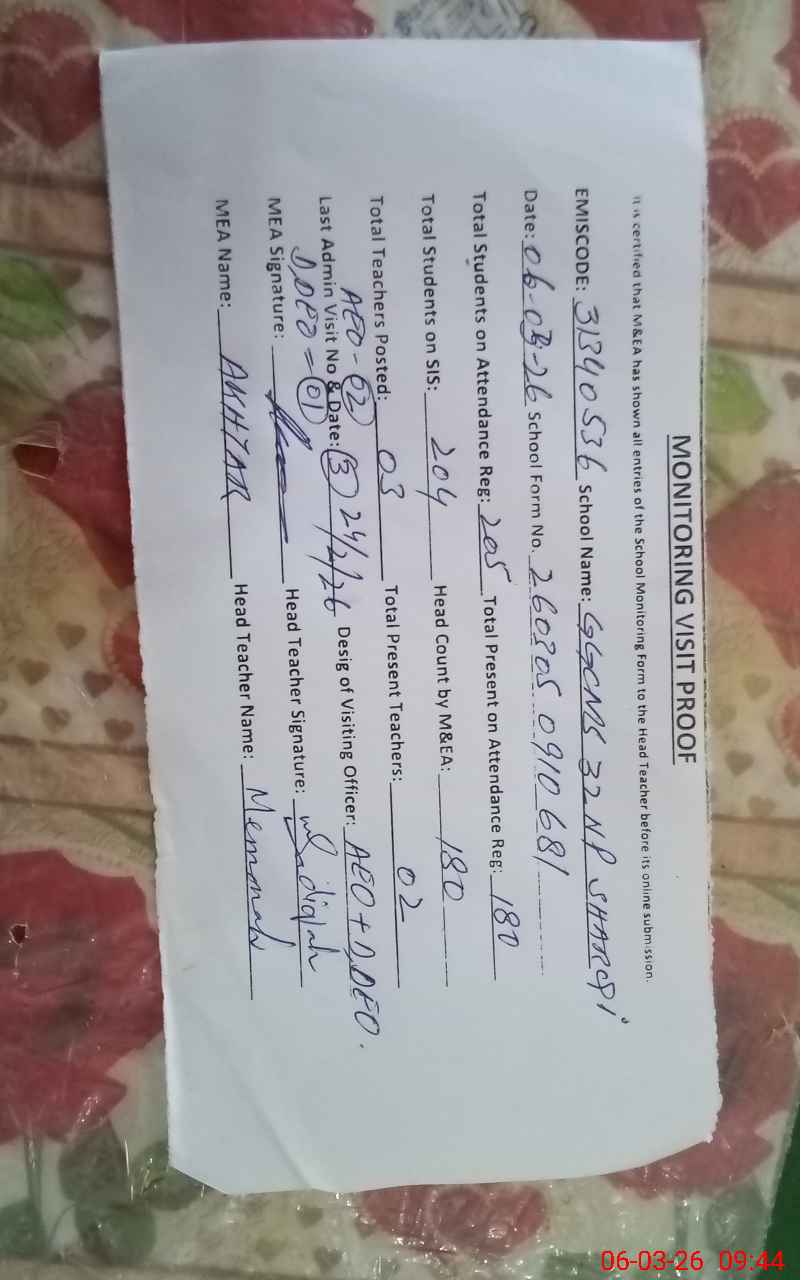 MONITORING VISIT PROOF
It is certified that M&EA has shown all entries of the School Monitoring Form to the Head Teacher before its online submission.
EMISCODE: 31340536 School Name: GGCMS 32 NP SHARQI
Date: 06-03-26 School Form No. 260305 0910681
Total Students on Attendance Reg: 205 Total Present on Attendance Reg: 180
Total Students on SIS: 204 Head Count by M&EA: 180
Total Teachers Posted: 03 Total Present Teachers: 02
AEO - 02
Last Admin Visit No & Date: (3) 24/2/26 Desig of Visiting Officer: AEO + D,DEO.
D,DEO = 01
MEA Signature: Head Teacher Signature:
MEA Name: AKHTAR Head Teacher Name: Memonah
06-03-26 09:44